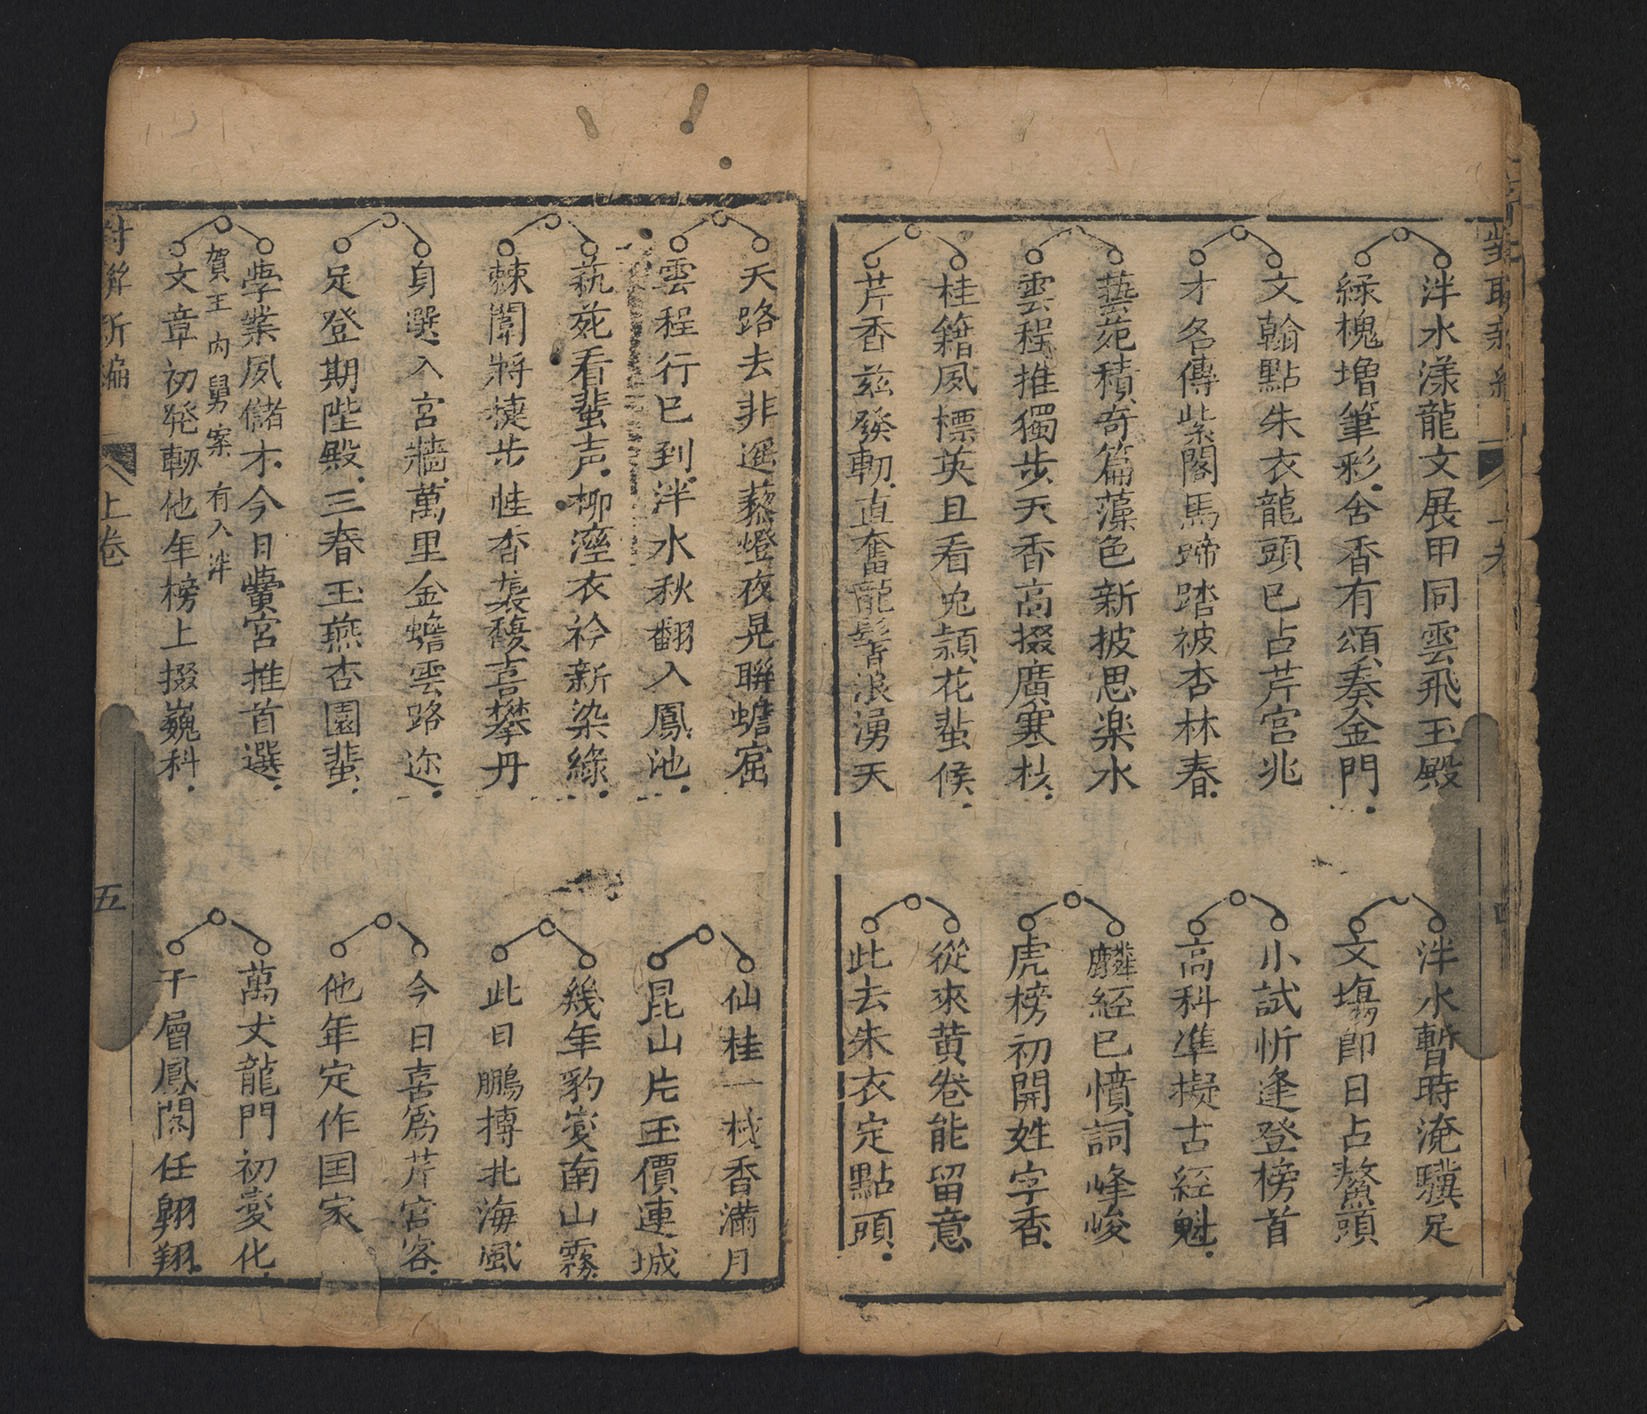 泮水漾龍文展甲同雲飛玉殿
綠槐增筆彩舍香有頌奏金門
文翰點朱衣龍頭已占芹宮兆
才名傳紫閣馬蹄踏被杏林春
藝苑積奇篇藻色新披思楽水
雲程推獨步天香高掇廣寒枝
桂籍夙標英且看兎頴花蜚候
芹香兹發軔直奮龍髻浪湧天
泮水暫時淹驥足
文塲即日占鰲頭
小試忻逢登榜首
高科準擬古經魁
麟經已憤詞峰峻
虎榜初開姓字香
從來黄卷能留意
此去朱衣定點頭
天路去非遥藜燈夜晃聯蟾窟
雲程行已到泮水秋翻入鳳池
萟苑看蜚声柳溼衣衿新染綠
棘闈將捷步性香袭馥喜攀丹
身選入宮牆萬里金蟾雲路迩
足登期陛殿三春玉燕杏園蜚
學業夙儲才今日黌宮推首選
賀王內舅案有入泮
文章初発軔他年榜上掇巍科
仙桂一枝香滿月
昆山片玉價連城
幾年豹変南山霧
此日鵬摶北海風
今日喜為芹宮客
他年定作国家
萬丈龍門初変化
千層鳳閣任翱翔
上卷
五